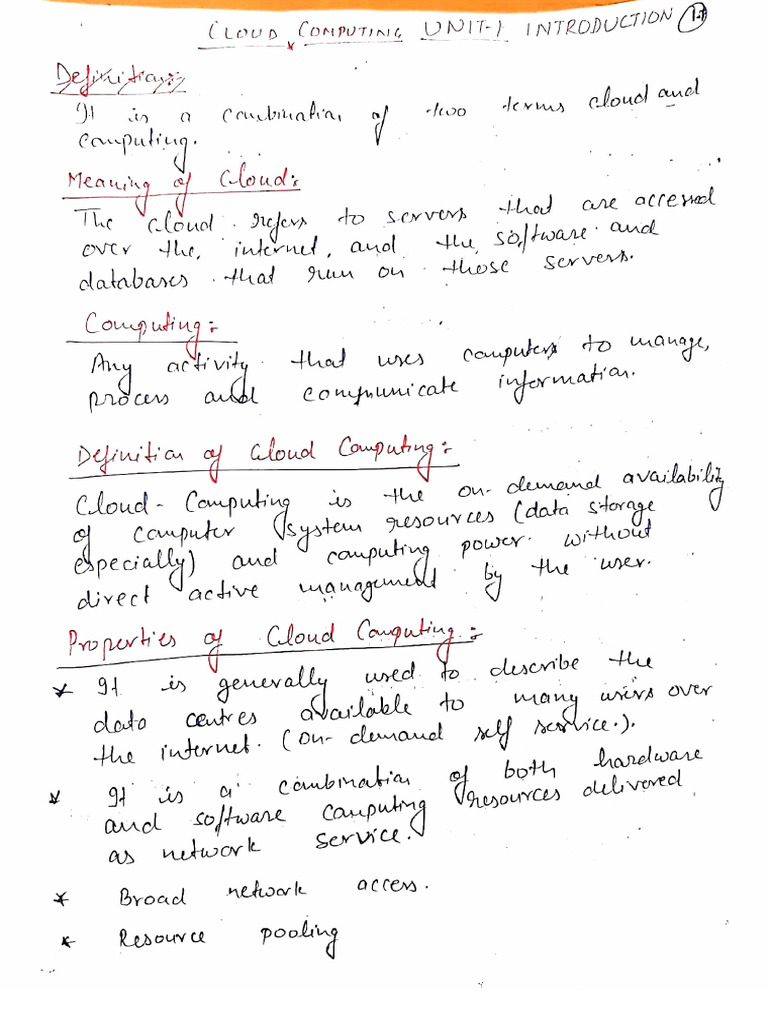 CLOUD COMPUTING UNIT-1 INTRODUCTION
Definition:
It is a combination of two terms cloud and
computing.
Meaning of Cloud:
The cloud refers to servers that are accessed
over the internet, and the software and
databases that run on those servers.
Computing:
Any activity that uses computers to manage,
process and communicate information.
Definition of Cloud Computing:
Cloud-Computing is the on-demand availability
of computer system resources (data storage
especially) and computing power without
direct active management by the user.
Properties of Cloud Computing:
* It is generally used to describe the
data centres available to many users over
the internet. (on-demand self service.).
* It is a combination of both hardware
and software computing resources delivered
as network service.
* Broad network access.
* Resource pooling